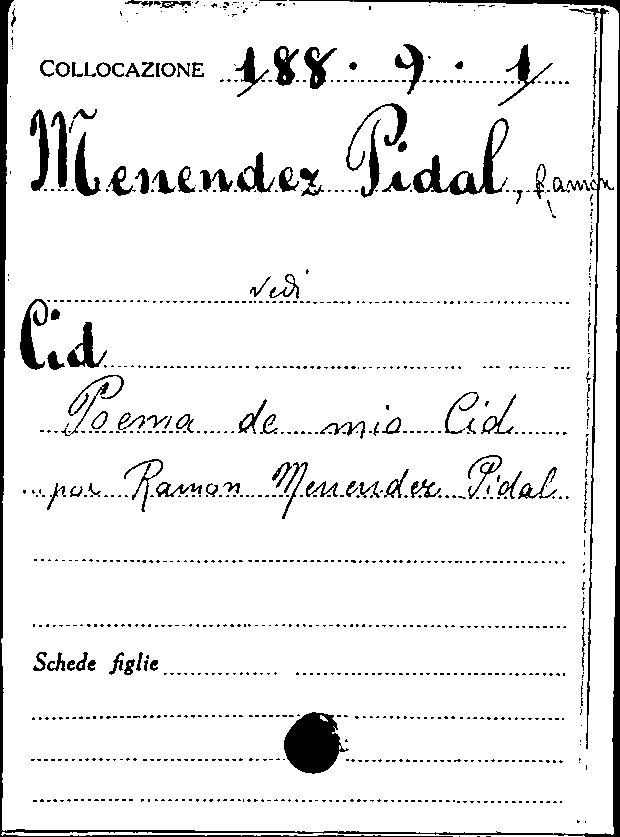 COLLOCAZIONE 188.9.1
Menendez Pidal, Ramon
vedi
Cid
Poema de mio Cid
...por Ramon Menendez Pidal
Schede figlie